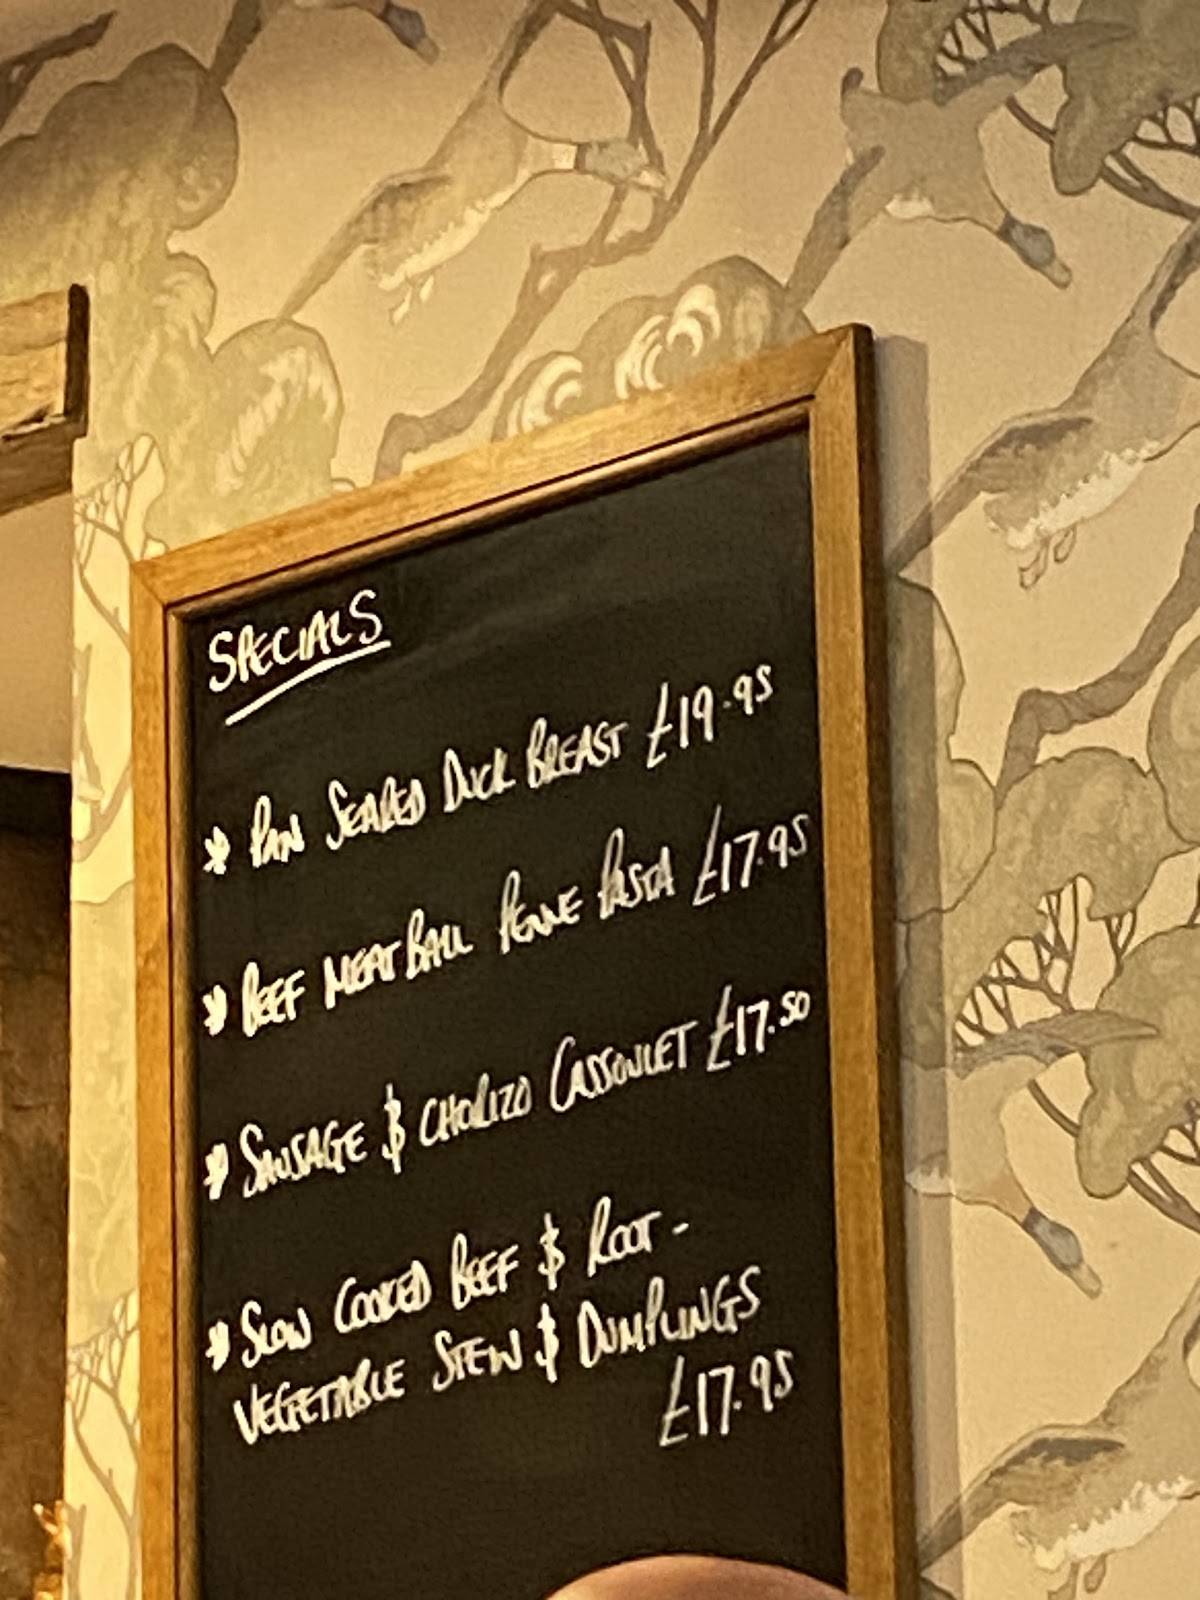 SPECIALS
* PAN SEARED DUCK BREAST £19.95
* BEEF MEATBALL PENNE PASTA £17.95
* SAUSAGE & CHORIZO CASSOULET £17.50
* SLOW COOKED BEEF & ROOT -
VEGETABLE STEW & DUMPLINGS
£17.95